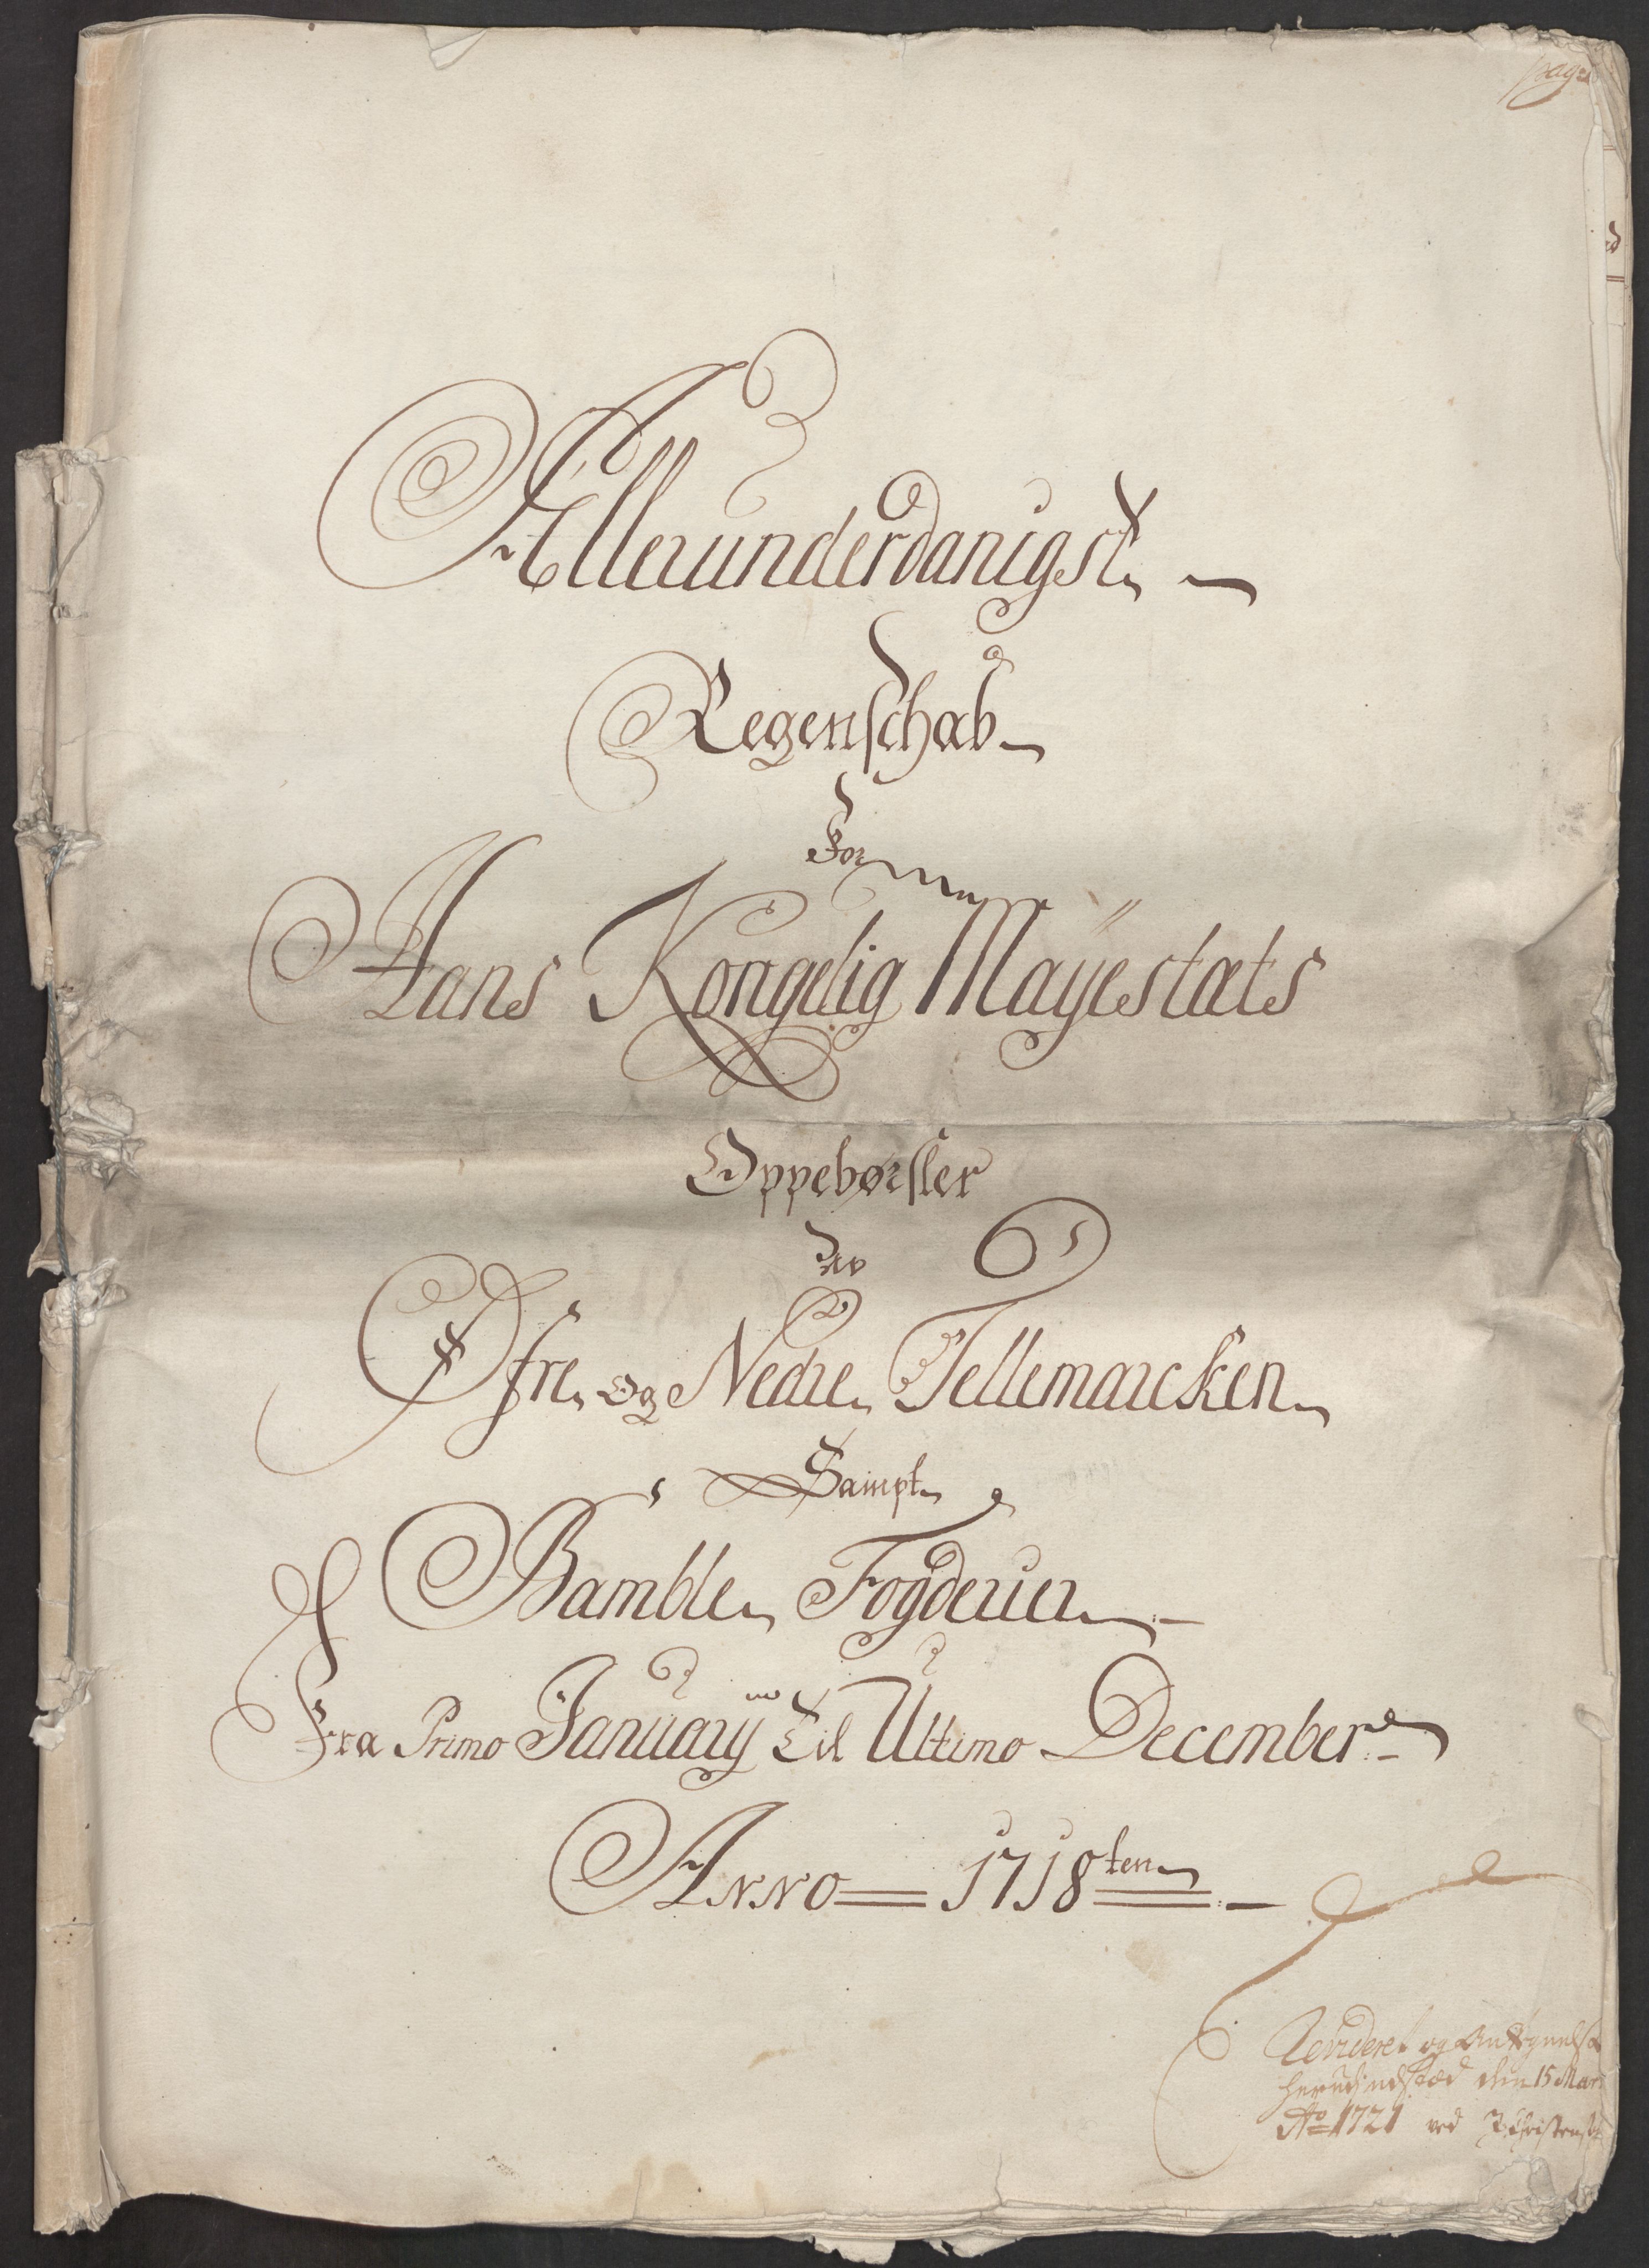 pag: 1
Allerunderdanigst
Regenschab
For
Hans Kongelig Mayestæts
Oppebørsler
Av
Øfre og Nedre Tellemarcken
Sampt
Bamble Fogderier
Fra Primo January til Ultimo December
Anno 1718ten
Revideret og Antegnelse
herudi udsted den 15 Mar
Ao 1721 ved